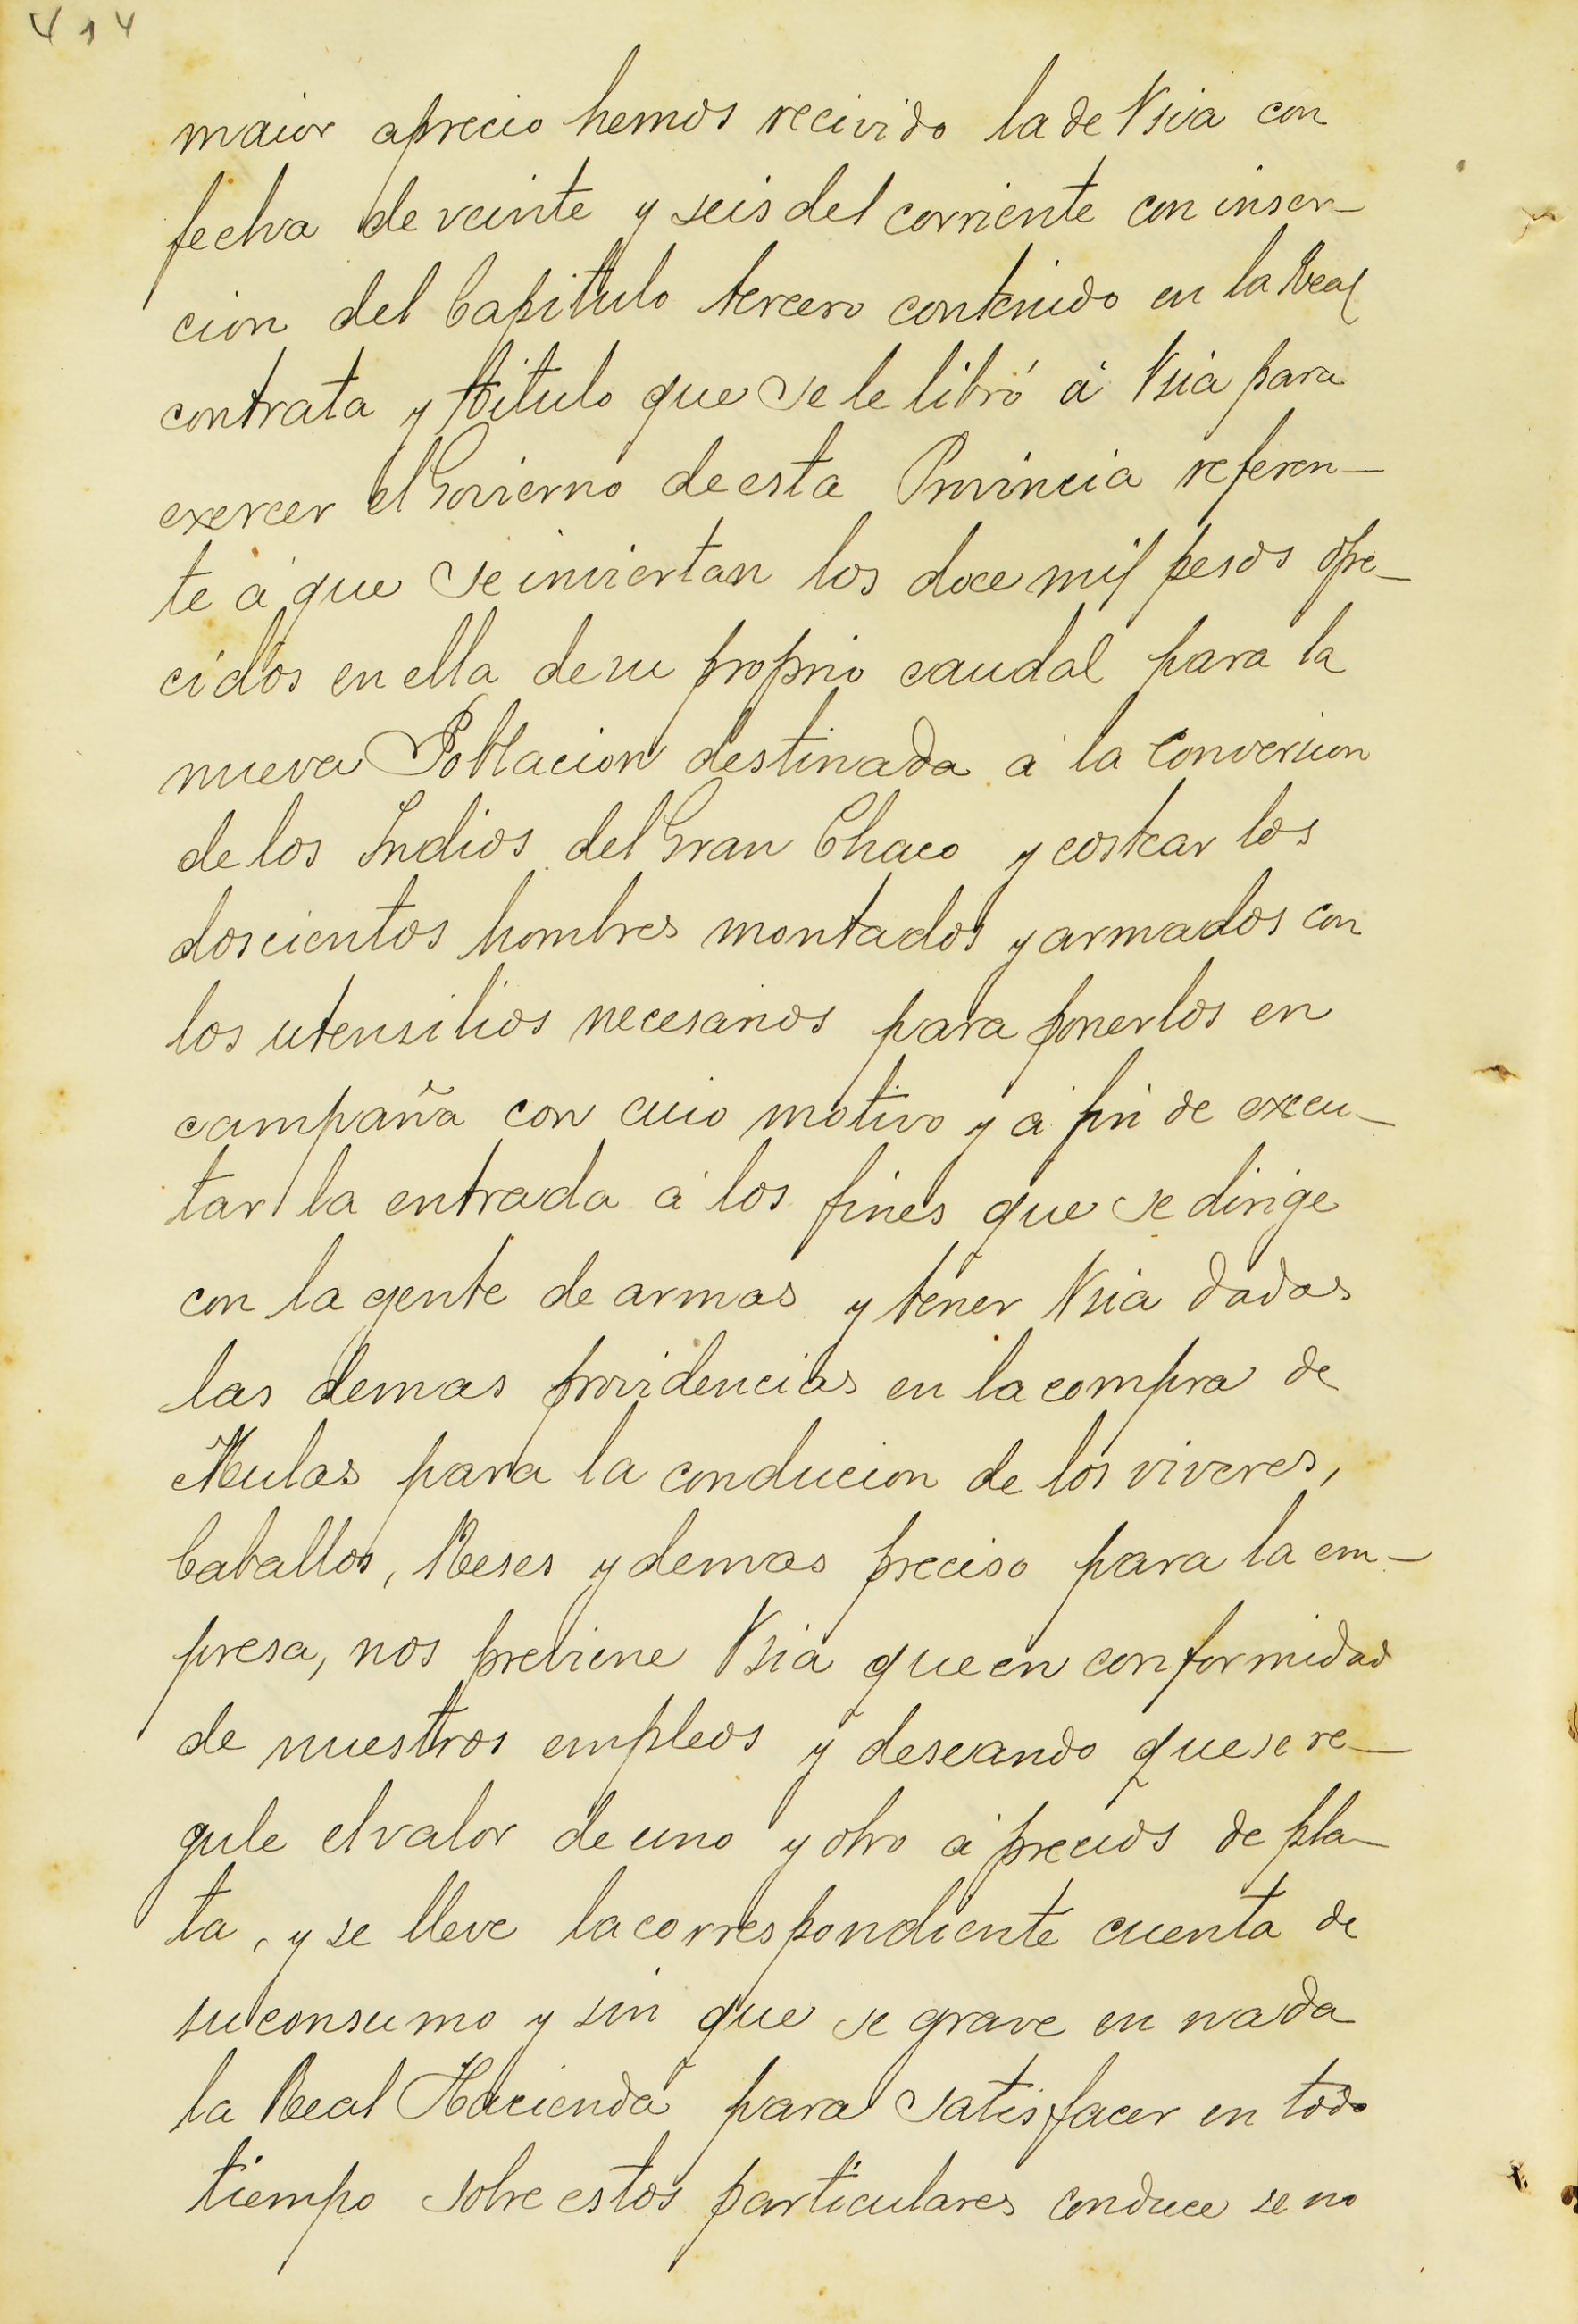 414
maior aprecio hemos recivido la de Vsia con
fecha de veinte y seis del corriente con inser-
cion del Capitulo tercero contenido en la Real
contrata y titulo que se le libró á Vsia para
exercer el Govierno de esta Provincia referen-
te á que se inviertan los doce mil pesos ofre-
cidos en ella de su proprio caudal para la
nueva Poblacion destinada á la Conversion
de los Indios del Gran Chaco y costear los
doscientos hombres montados y armados con
los utensilios necesarios para ponerlos en
campaña con cuio motivo y á fin de execu-
tar la entrada á los fines que se dirige
con la gente de armas y tener Vsia dadas
las demas providencias en la compra de
Mulas para la conducion de los viveres,
Caballos, Reses y demas preciso para la em-
presa, nos previene Vsia que en conformidad
de nuestros empleos y deseando que se re-
gule el valor de uno y otro á precios de pla-
ta, y se lleve la correspondiente cuenta de
su consumo y sin que se grave en nada
la Real Hacienda para satisfacer en todo
tiempo sobre estos particulares conduce se no